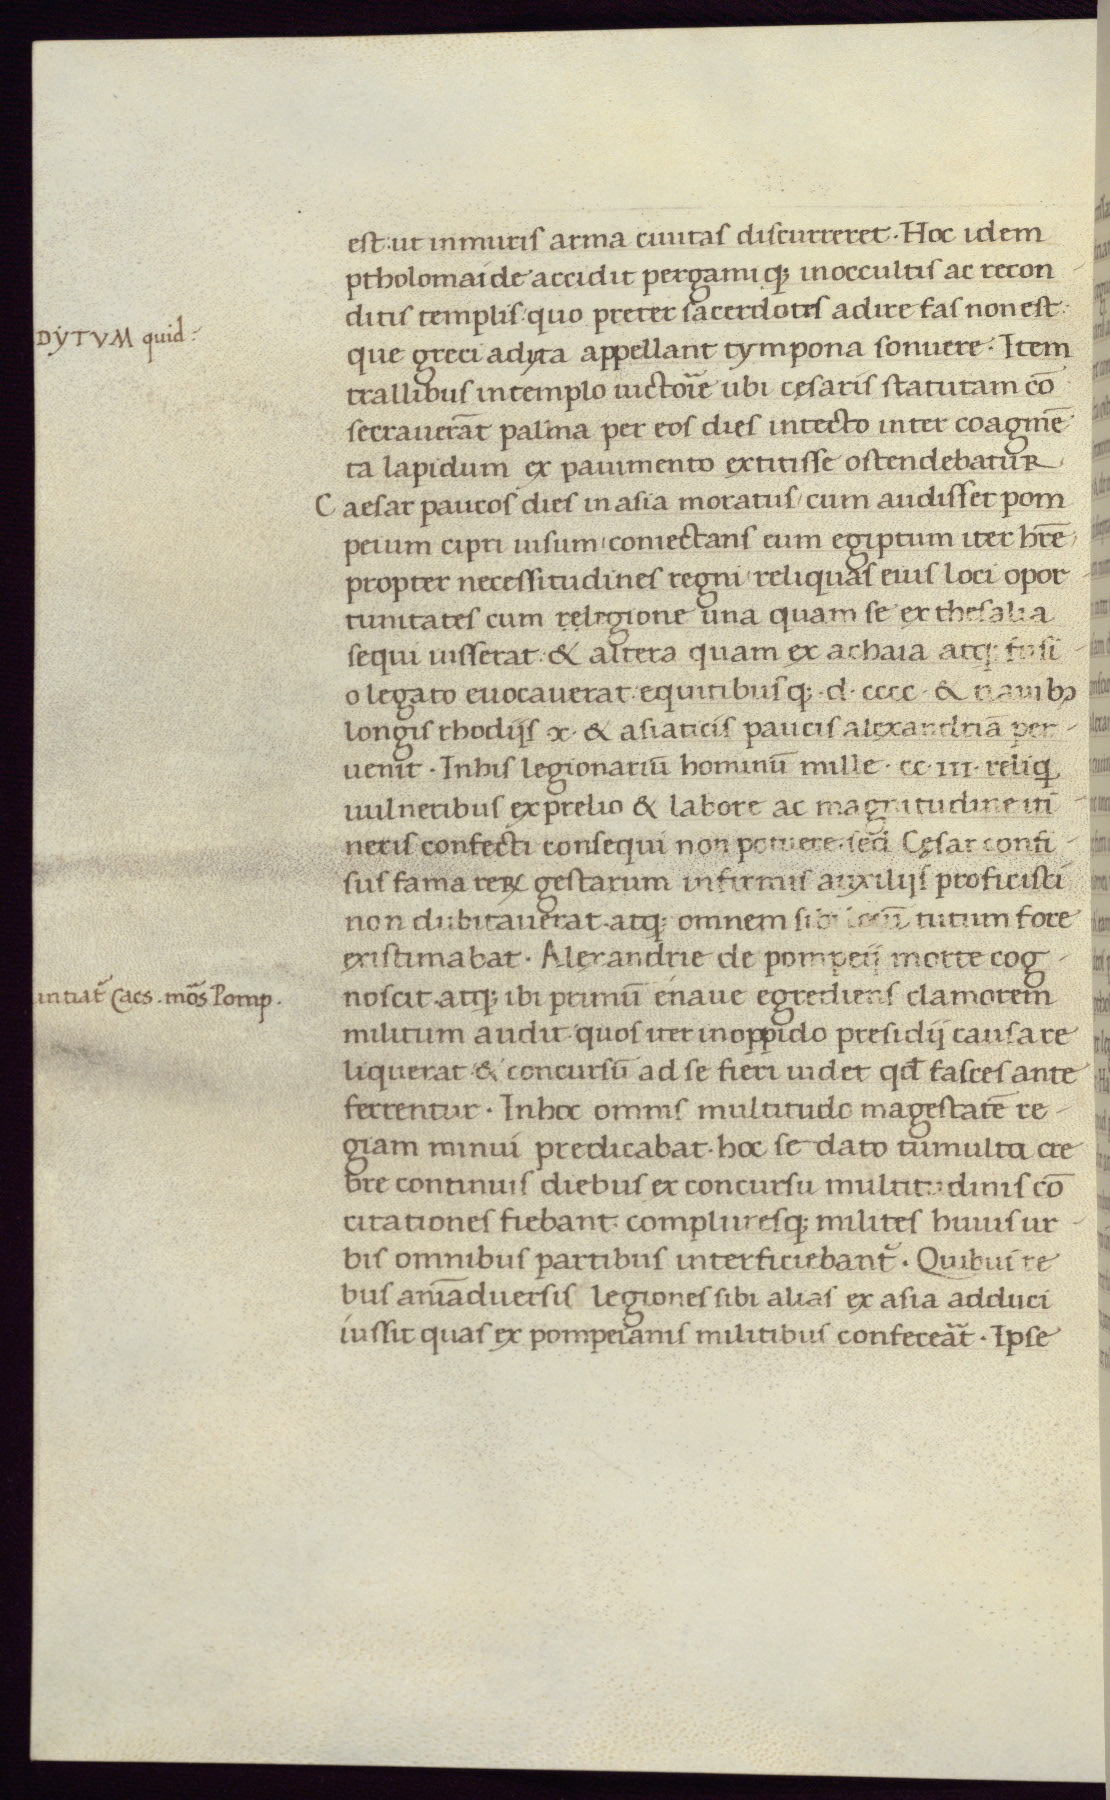 est: ut in muris arma ciuitas discurreret. Hoc idem
ptholomaide accidit pergamiq; in occultis ac recon
DYTVM quid.
ditis templis: quo preter sacerdotes adire fas non est:
que greci adyta appellant tympona sonuere. Item
trallibus in templo uictorie ubi cęsaris statutam cō
secrauerāt palma per eos dies intecto inter coagmē
ta lapidum ex pauimento extitisse ostendebatur
Caesar paucos dies in asia moratus / cum audisset pom
peium cipri uisum / coniectans eum egiptum iter hr̄e
propter necessitudines regni / reliquas eius loci opor
tunitates cum relegione una quam se ex thesalia
sequi iusserat: & altera quam ex achaia atq; fusi
o legato euocauerat: equitibusq; d. cccc. & nauibꝫ
longis rhodijs x. & asiaticis paucis alexandriā per
uenit. In his legionariū hominū mille. cc. iii. reliq
uulneribus ex prelio & labore ac magnitudine iti
neris confecti consequi non potuere. sed Cęsar confi
sus fama reꝝ gestarum infirmis auxilijs proficisci
non dubitauerat. atq; omnem sibi locū tutum fore
existimabat. Alexandrie de pompeij morte cog
untiat̄ Caes. mōs Pomp.
noscit. atq; ibi primū enaue egrediens clamorem
militum audit. quos iter in oppido presidij causa re
liquerat & concursū ad se fieri uidet qđ fasces ante
ferrentur. In hoc omnis multitudo magestatē re
giam minui predicabat. hoc se dato tumultu cre
bre continuis diebus ex concursu multitudinis cō
citationes fiebant: compluresq; milites huius ur
bis omnibus partibus interficiebant̄. Quibus re
bus aniāduersis legiones sibi alias ex asia adduci
iussit quas ex pompeianis militibus confecerāt. Ipse